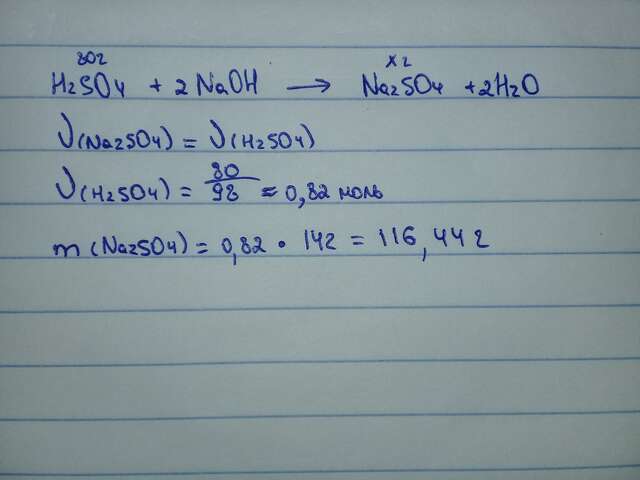 80г x г
H2SO4 + 2NaOH → Na2SO4 + 2H2O
ν(Na2SO4) = ν(H2SO4)
ν(H2SO4) = 80/98 ≈ 0,82 моль
m(Na2SO4) = 0,82 • 142 = 116,44 г